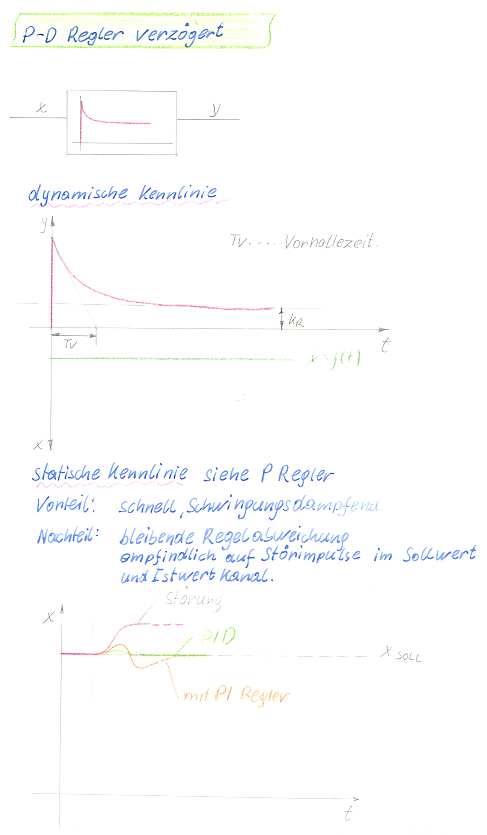 P-D Regler verzögert
x y
dynamische Kennlinie
y
Tv .... Vorhallezeit.
KR
Tv
t
x
statische Kennlinie siehe P Regler
Vorteil: schnell, Schwingungsdämpfend
Nachteil: bleibende Regelabweichung
empfindlich auf Störimpulse im Sollwert
und Istwert Kanal.
Störung
x
PID
x SOLL
mit PI Regler
t